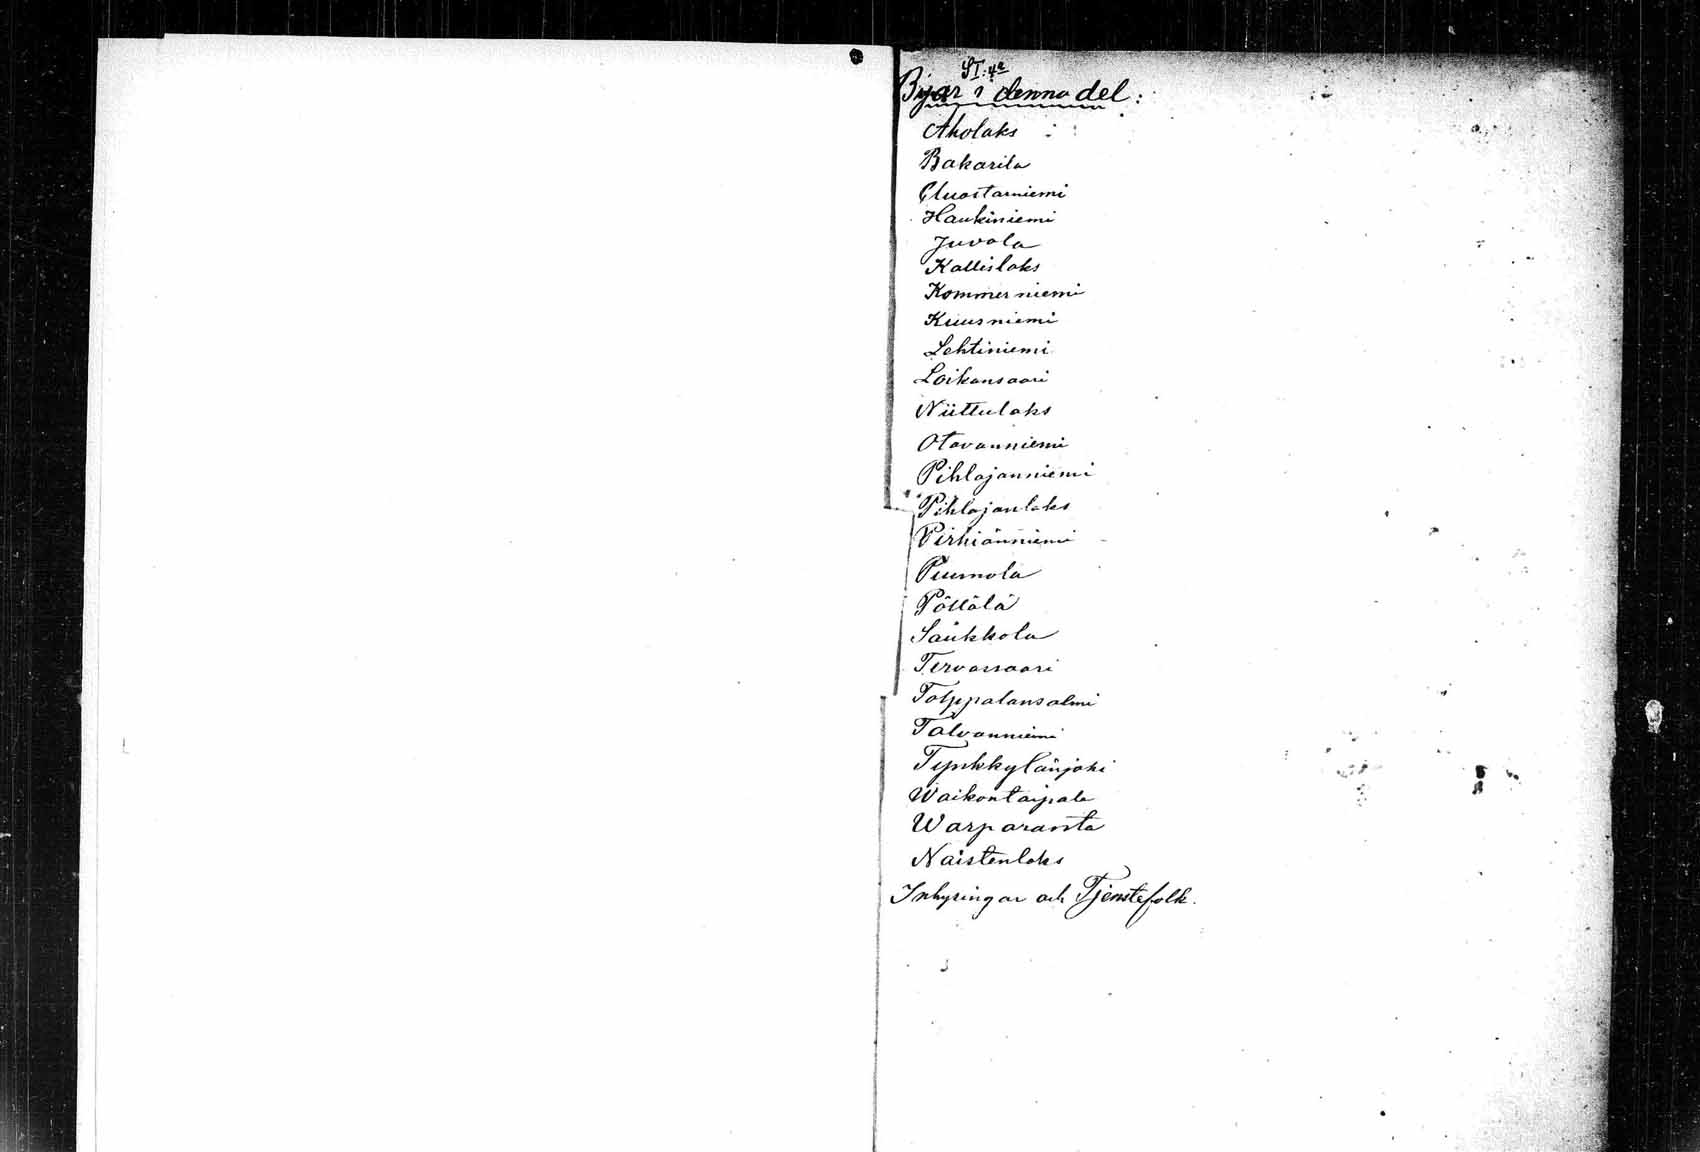 Byar i denna del:
Aholaks
Bakarila
Haukiniemi
Juvola
Kallislaks
Kommerniemi
Kuusniemi
Lehtiniemi
Loikansaari
Niittulaks
Otavanniemi
Pihlajanniemi
Pihlajanlaks
Pirhiänniemi
Puumola
Pöllälä
Säükkola
Tervassaari
Tolppalansalmi
Talvanniemi
Tynkkylänjoki
Waikontaipale
Warparanta
Naistenlaks
Inhysingar och Tjenstefolk.